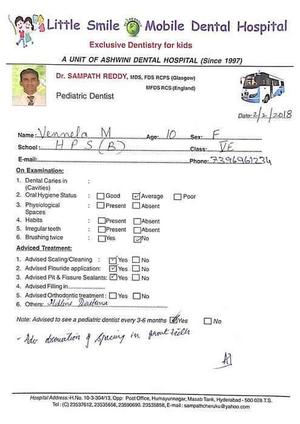 Little Smile Mobile Dental Hospital
Exclusive Dentistry for kids
A UNIT OF ASHWINI DENTAL HOSPITAL (Since 1997)
Dr. SAMPATH REDDY, MDS, FDS RCPS (Glasgow)
MFDS RCS (England)
Pediatric Dentist
Date: 2/2/2018
Name: Vennela M Age: 10 Sex: F
School: HPS (B) Class: VE
E-mail: Phone: 7396961234
On Examination:
1. Dental Caries in (Cavities) :
2. Oral Hygiene Status : Good Average Poor
3. Physiological Spaces : Present Absent
4. Habits : Present Absent
5. Irregular teeth : Present Absent
6. Brushing twice : Yes No
Adviced Treatment:
1. Advised Scaling/Cleaning : Yes No
2. Advised Flouride application : Yes No
3. Advised Pit & Fissure Sealants : Yes No
4. Advised Filling in
5. Advised Orthodontic treatment : Yes No
6. Others:
Note: Advised to see a pediatric dentist every 3-6 months Yes No
- of spacing in front teeth
Hospital Address: H.No. 10-3-304/13, Opp: Post Office, Humayunnagar, Masab Tank, Hyderabad - 500 028 T.S.
Tel: (C) 23537612, 23535656, 23590693, 23535858, E-mail: sampathcheruku@yahoo.com